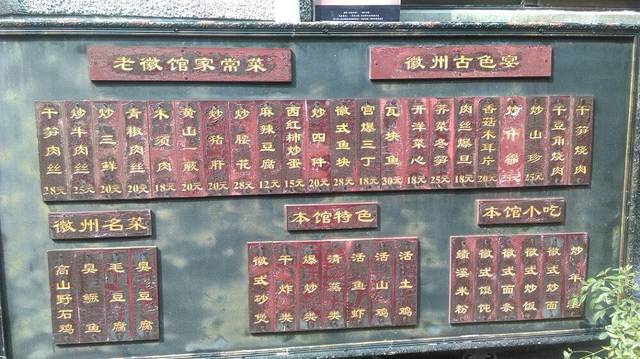 老徽馆家常菜
徽州古色宴
干笋肉丝 28元
炒牛肉丝 25元
炒三鲜 20元
青椒肉丝 20元
木须肉 18元
黄山一蕨 18元
炒猪肝 20元
炒腰花 28元
麻辣豆腐 12元
西红柿炒蛋 15元
炒四件 20元
徽式鱼块 28元
宫爆三丁 18元
瓦块鱼 30元
开洋菜心 18元
荠菜冬笋 25元
肉丝爆旦 18元
香菇木耳片 20元
炒什锦 25元
炒山珍 25元
干豆角烧肉
干笋烧肉
徽州名菜
本馆特色
本馆小吃
高山野石鸡
臭鳜鱼
毛豆腐
臭豆腐
徽式砂煲
干炸类
爆炒类
清蒸类
活鱼虾
活山鸡
活土鸡
绩溪米粉
徽式馄饨
徽式面条
徽式炒饭
徽式炒面
炒年